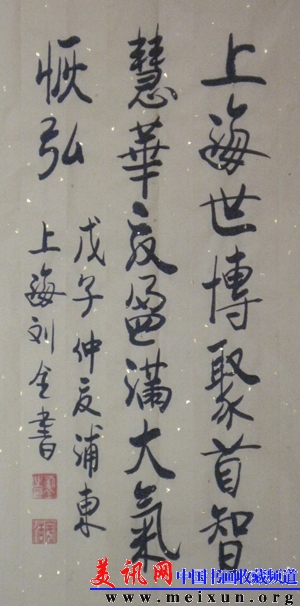 上海世博聚首智
慧華夏盈滿大氣
恢弘
戊子仲夏浦東
上海刘金書
美讯网 中国书画收藏频道
www.meixun.org